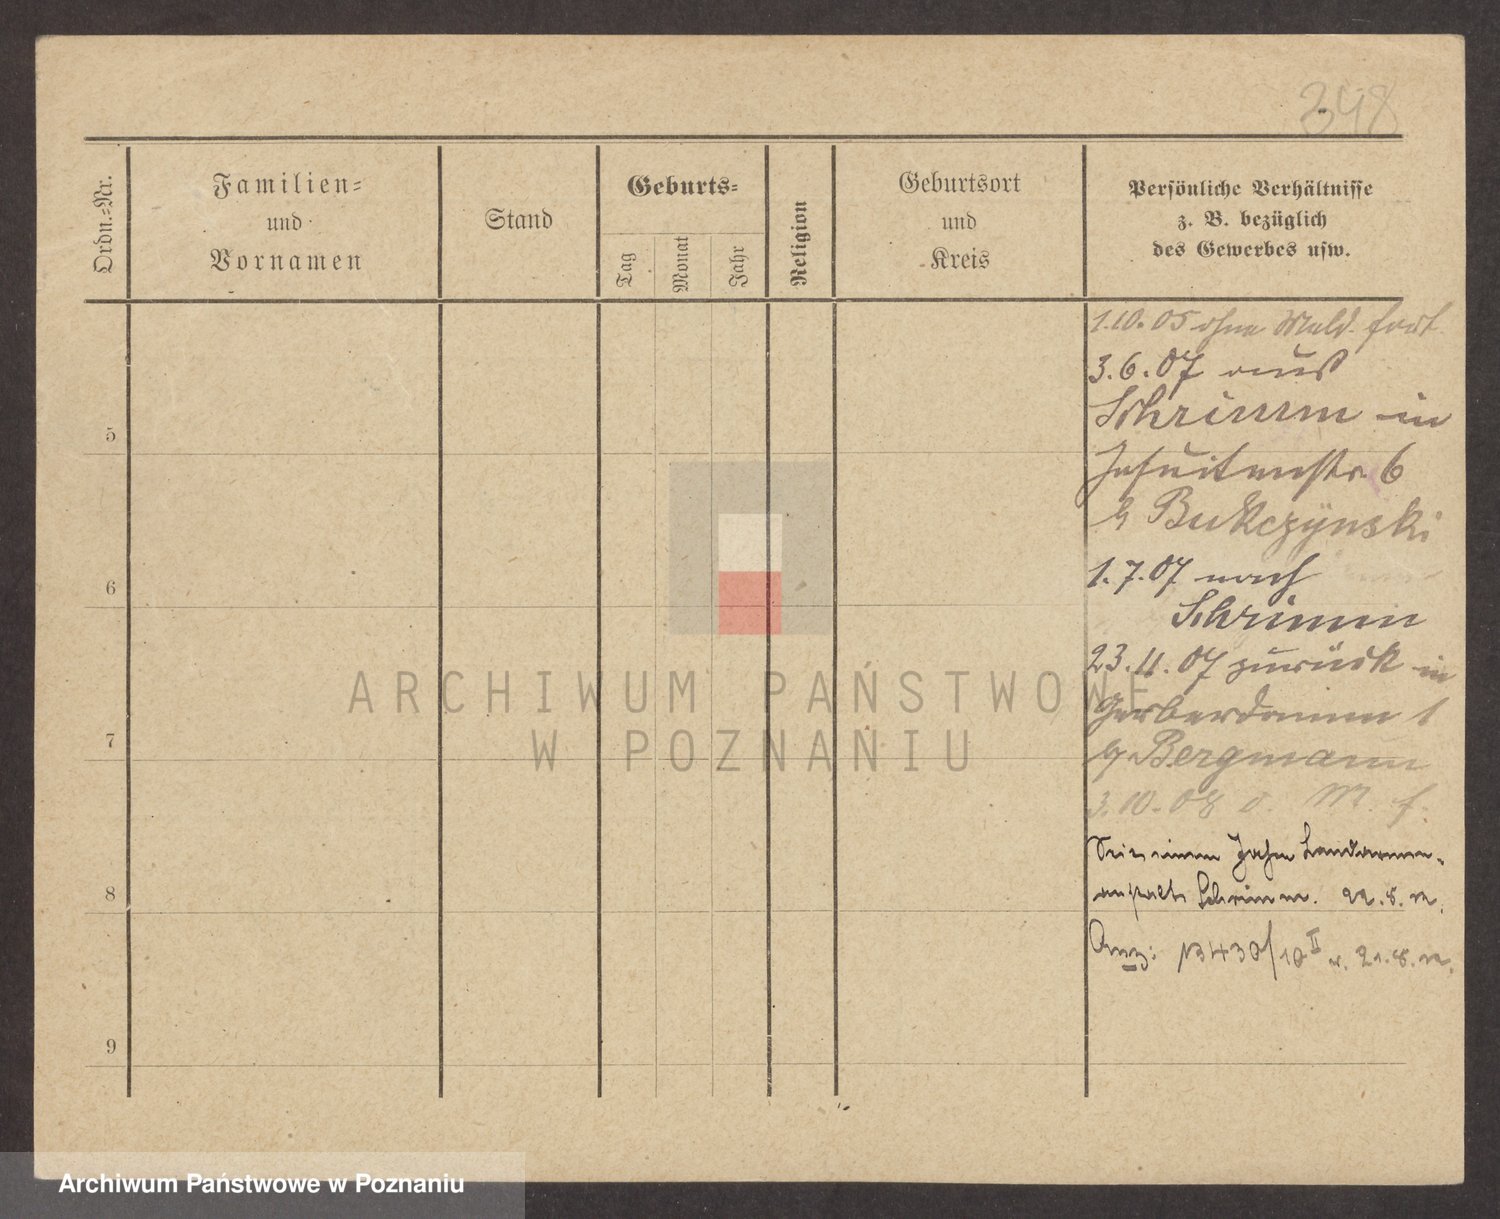 348
Ordn.-Nr.
Familien-
und
Vornamen
Stand
Geburts-
Tag
Monat
Jahr
Religion
Geburtsort
und
Kreis
Persönliche Verhältnisse
z. B. bezüglich
des Gewerbes usw.
1.10.05 ohne Meld. fort.
3.6.07 aus
Schrimm in
Jesuitenstr. 6
b Bukczynski
1.7.07 nach
Schrimm
23.11.07 zurück in
Gerberdamm 1
b Bergmann
3.10.08 o. M. f.
Seit einem Jahre Landarmen-
anstalt Schrimm. 22.8.12.
Anz: 13430/10 II v. 21.8.12.
5
6
7
8
9
ARCHIWUM PAŃSTWOWE
W POZNANIU
Archiwum Państwowe w Poznaniu